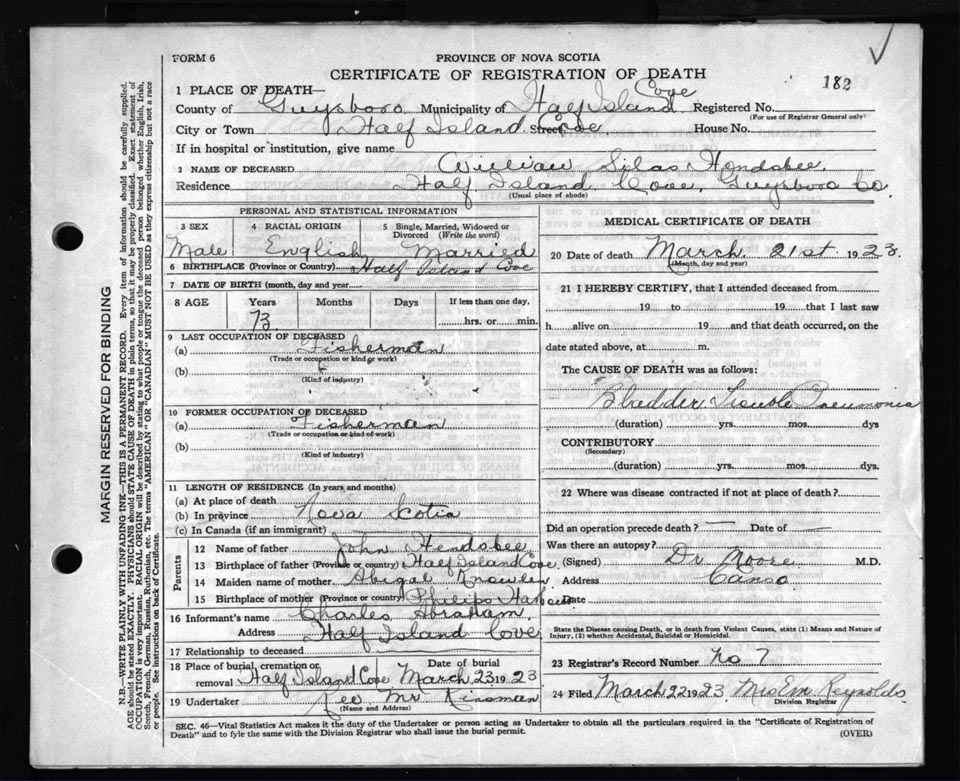 FORM 6
PROVINCE OF NOVA SCOTIA
CERTIFICATE OF REGISTRATION OF DEATH
182
1 PLACE OF DEATH—
County of Guysboro Municipality of Half Island Cove Registered No.
(For use of Registrar General only)
City or Town Half Island Cove Street House No.
If in hospital or institution, give name
2 NAME OF DECEASED William Silas Hendsbee
Residence Half Island Cove, Guysboro Co
(Usual place of abode)
PERSONAL AND STATISTICAL INFORMATION
3 SEX 4 RACIAL ORIGIN 5 Single, Married, Widowed or Divorced (Write the word)
Male English Married
6 BIRTHPLACE (Province or Country) Half Island Cove
7 DATE OF BIRTH (month, day and year)
8 AGE Years Months Days If less than one day,
73 hrs. or min.
9 LAST OCCUPATION OF DECEASED
(a) Fisherman
(Trade or occupation or kind of work)
(b)
(Kind of industry)
10 FORMER OCCUPATION OF DECEASED
(a) Fisherman
(Trade or occupation or kind of work)
(b)
(Kind of industry)
11 LENGTH OF RESIDENCE (In years and months)
(a) At place of death
(b) In province Nova Scotia
(c) In Canada (if an immigrant)
Parents
12 Name of father John Hendsbee
13 Birthplace of father (Province or country) Half Island Cove
14 Maiden name of mother Abigal
15 Birthplace of mother (Province or country) Philips Harbour
16 Informant's name Charles Abraham
Address Half Island Cove
17 Relationship to deceased
18 Place of burial, cremation or removal Half Island Cove Date of burial March 23 1923
19 Undertaker Rev Mr Kinsman
(Name and Address)
MEDICAL CERTIFICATE OF DEATH
20 Date of death March 21st 1923.
(Month, day and year)
21 I HEREBY CERTIFY, that I attended deceased from
19 to 19 that I last saw
h alive on 19 and that death occurred, on the
date stated above, at m.
The CAUSE OF DEATH was as follows:
Bladder Trouble Pneumonia
(duration) yrs. mos. dys
CONTRIBUTORY
(Secondary)
(duration) yrs. mos. dys.
22 Where was disease contracted if not at place of death?
Did an operation precede death? — Date of —
Was there an autopsy?
(Signed) Dr Moore M.D.
Address Canso
Date
State the Disease causing Death, or in death from Violent Causes, state (1) Means and Nature of
Injury, (2) whether Accidental, Suicidal or Homicidal.
23 Registrar's Record Number No 7
24 Filed March 22 1923 Mrs Em Reynolds
Division Registrar
SEC. 46—Vital Statistics Act makes it the duty of the Undertaker or person acting as Undertaker to obtain all the particulars required in the "Certificate of Registration of
Death" and to fyle the same with the Division Registrar who shall issue the burial permit.
(OVER)
MARGIN RESERVED FOR BINDING
N.B.—WRITE PLAINLY WITH UNFADING INK—THIS IS A PERMANENT RECORD. Every item of information should be carefully supplied.
AGE should be stated EXACTLY. PHYSICIANS should STATE CAUSE OF DEATH in plain terms, so that it may be properly classified. Exact statement of
OCCUPATION is very important. RACIAL ORIGIN will be described by stating to what people or tongue the deceased person belonged whether English, Irish,
Scotch, French, German, Russian, Ruthenian, etc. The terms "AMERICAN" OR "CANADIAN" MUST NOT BE USED as they express citizenship but not a race
or people. See instructions on back of Certificate.